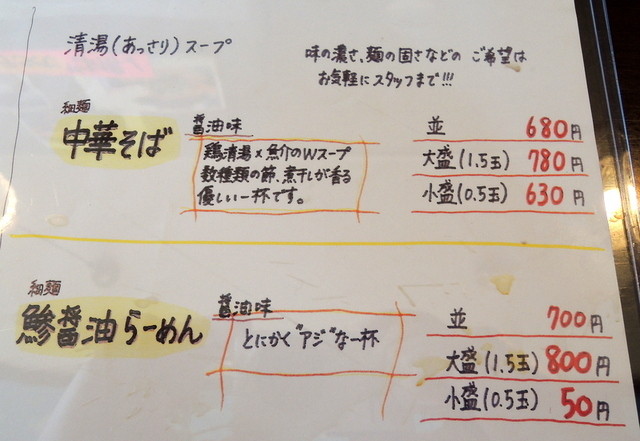 清湯(あっさり)スープ
味の濃さ、麺の固さなどの ご希望は
お気軽にスタッフまで!!!
細麺
中華そば
醤油味
鶏清湯×魚介のWスープ
数種類の節、煮干しが香る
優しい一杯です。
並 680円
大盛(1.5玉) 780円
小盛(0.5玉) 630円
細麺
鯵醤油らーめん
醤油味
とにかく"アジ"な一杯
並 700円
大盛(1.5玉) 800円
小盛(0.5玉) 50円